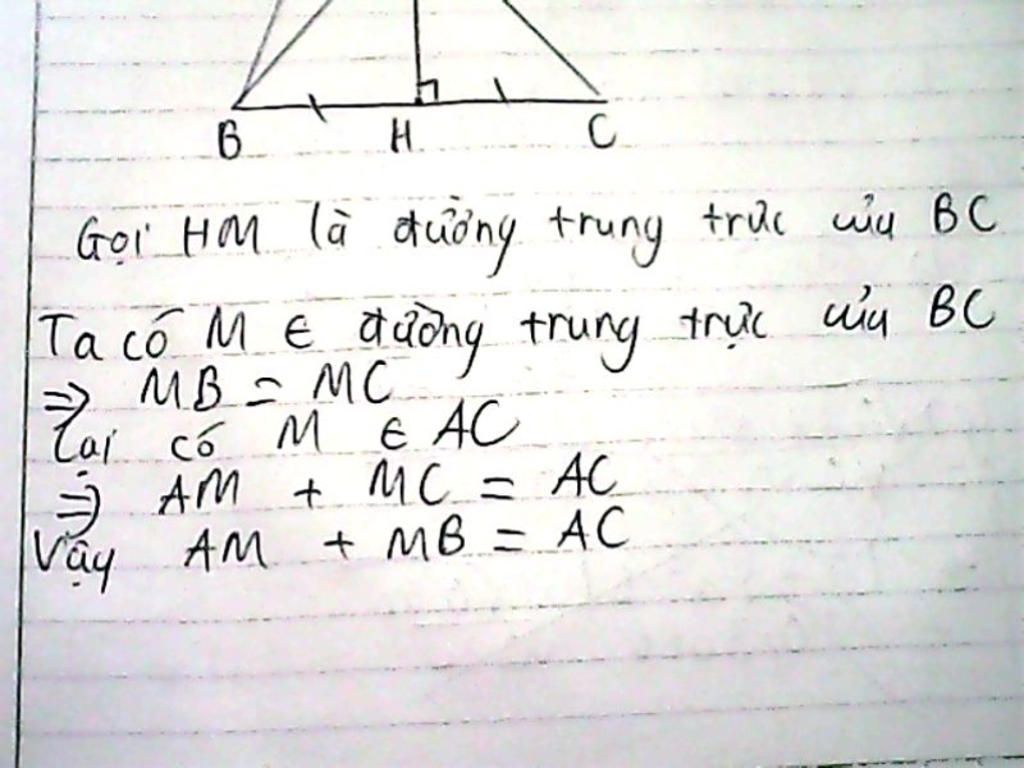 B H C
Gọi HM là đường trung trực của BC
Ta có M ∈ đường trung trực của BC
⇒ MB = MC
Lại có M ∈ AC
⇒ AM + MC = AC
Vậy AM + MB = AC